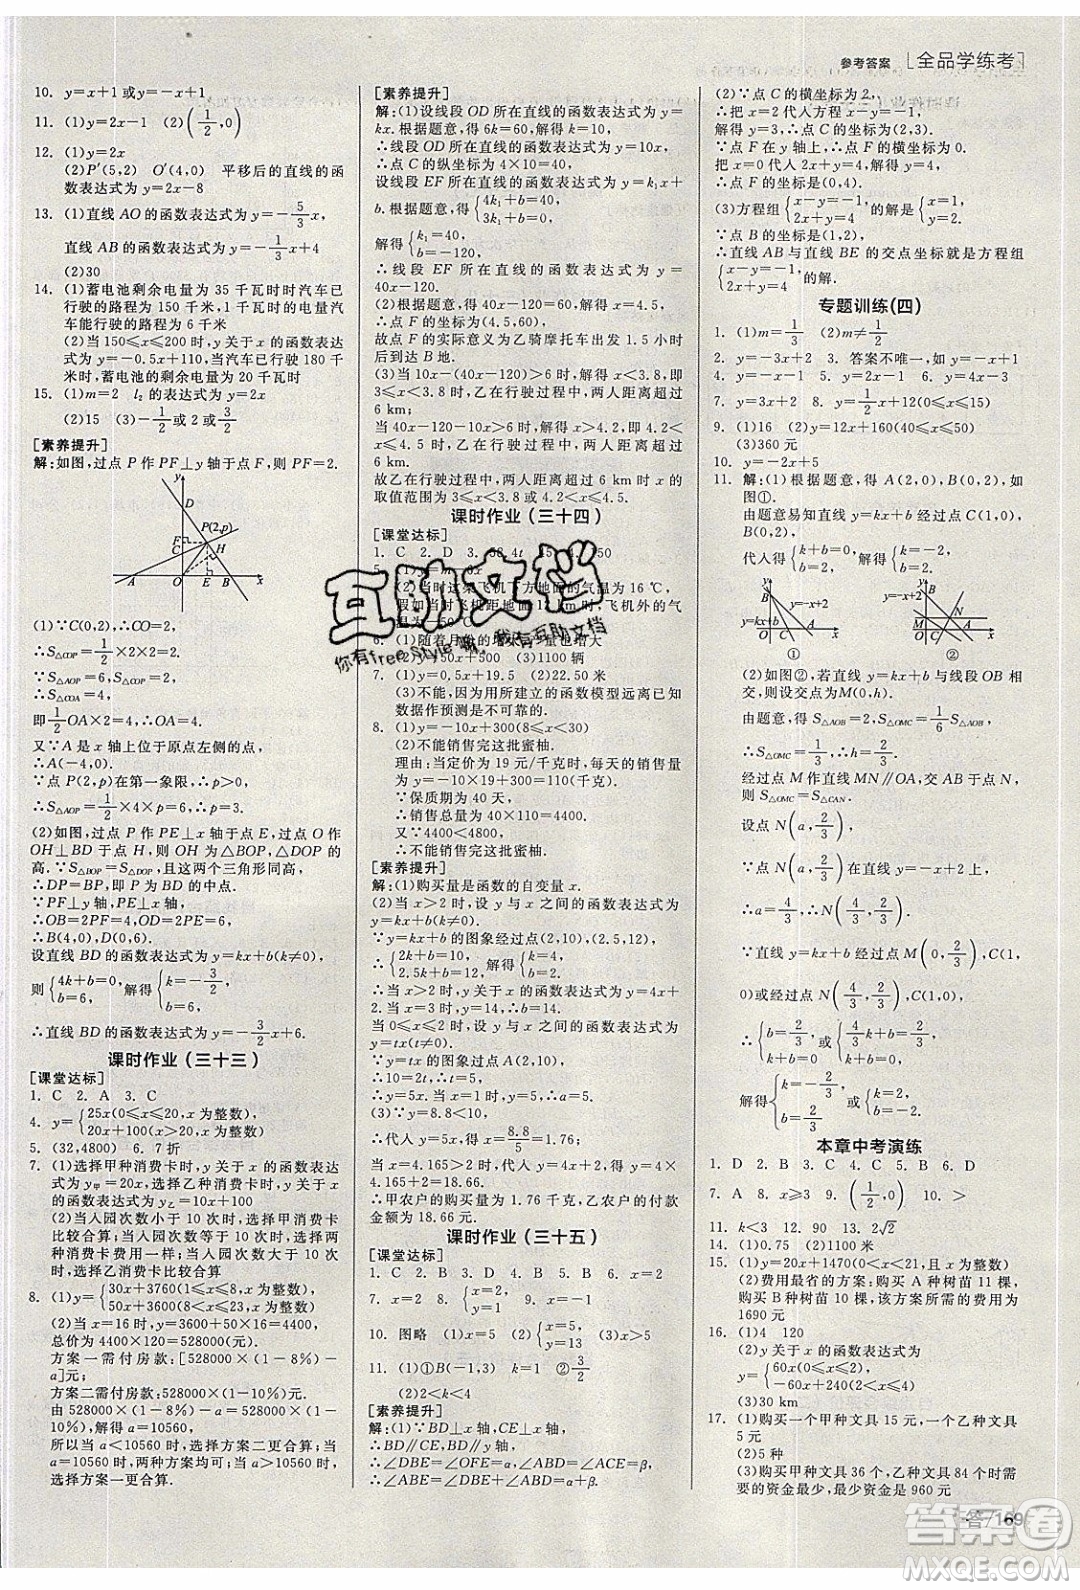 参考答案 [全品学练考]
10. y=x+1 或 y=-x+1
11. (1)y=2x-1 (2)(1/2,0)
12. (1)y=2x
(2)P′(5,2) O′(4,0) 平移后的直线的函
数表达式为 y=2x-8
13. (1)直线 AO 的函数表达式为 y=-5/3x,
直线 AB 的函数表达式为 y=-1/3x+4
(2)30
14. (1)蓄电池剩余电量为 35 千瓦时时汽车已
行驶的路程为 150 千米,1 千瓦时的电量汽
车能行驶的路程为 6 千米
(2)当 150≤x≤200 时,函数表达式为 y=
-0.5x+110,当汽车已行驶 180 千米
时,蓄电池的剩余电量为 20 千瓦时
15. (1)m=2 l₂ 的表达式为 y=2x
(2)15 (3)-1/2或 2 或 3/2
[素养提升]
解:如图,过点 P 作 PF⊥y 轴于点 F,则 PF=2.
y D F P(2,p) C H A O E B x
(1)∵C(0,2),∴CO=2,
∴S△COP=1/2×2×2=2.
∵S△AOP=6,S△COP=2,
∴S△COA=4,
即1/2OA×2=4,∴OA=4.
又∵A 是 x 轴上位于原点左侧的一点,
∴A(-4,0).
∵点 P(2,p)在第一象限,∴p>0,
∴S△AOP=1/2×4×p=6,∴p=3.
(2)如图,过点 P 作 PE⊥x 轴于点 E,过点 O 作
OH⊥BD 于点 H,则 OH 为△BOP,△DOP 的
高.∵S△BOP=S△DOP,且这两个三角形同高,
∴DP=BP,即 P 为 BD 的中点.
∵PF⊥y 轴,PE⊥x 轴,
∴OB=2PF=4,OD=2PE=6,
∴B(4,0),D(0,6).
设直线 BD 的函数表达式为 y=kx+b(k≠0),
则{4k+b=0, b=6, 解得{k=-3/2, b=6,
∴直线 BD 的函数表达式为 y=-3/2x+6.
课时作业(三十三)
[课堂达标]
1. C 2. A 3. C
4. y={25x(0≤x≤20,x 为整数) 20x+100(x>20,x 为整数)
5. (32,4800) 6. 7 折
7. (1)选择甲种消费卡时,y₍甲₎关于 x 的函数表
达式为 y甲=20x,选择乙种消费卡时,y乙关于
x 的函数表达式为 y乙=10x+100
(2)当入园次数小于 10 次时,选择甲消费卡
比较合算;当入园次数等于 10 次时,选择两
种消费卡费用一样;当入园次数大于 10 次时,选
择乙消费卡比较合算
8. (1)y={30x+3760(1≤x≤8,x 为整数) 50x+3600(9≤x≤23,x 为整数)
(2)当 x=16 时,y=3600+50×16=4400,
总价为 4400×120=528000(元).
方案一需付房款:[528000(1-8%)-
a]元;
方案二需付房款:528000(1-10%)元.
由 528000(1-8%)-a=528000(1-
10%),解得 a=10560,
所以当 a<10560 时,方案二更合算;当
a=10560 时,两种方案均可;当 a>10560
时,方案一更合算.
[素养提升]
解:(1)设线段 OD 所在直线的函数表达式为 y=
kx.根据题意,得 6k=60,解得 k=10,
∴线段 OD 所在直线的函数表达式为 y=10x,
∴点 C 的纵坐标为 4×10=40,
设线段 EF 所在直线的函数表达式为 y=k₁x+
b.根据题意,得{4k₁+b=40, 3k₁+b=0,
解得{k₁=40, b=-120,
∴线段 EF 所在直线的函数表达式为 y=
40x-120.
(2)根据题意,得 40x-120=60,解得 x=4.5,
∴点 F 的坐标为(4.5,60),
故点 F 的实际意义为乙骑摩托车出发 1.5 小时
后到达 B 地.
(3)当 10x-(40x-120)>6 时,解得 x<3.8,
故当 3≤x<3.8 时,乙在行驶过程中,两人距离超过
6 km;
当 40x-120-10x>6 时,解得 x>4.2,
故当 4.2<x≤4.5 时,乙在行驶过程中,两人距离超过
6 km.
故乙在行驶过程中,两人距离超过 6 km 时 x 的
取值范围为 3≤x<3.8 或 4.2<x≤4.5.
课时作业(三十四)
[课堂达标]
1. C 2. D
(2)当时这架飞机下方地面的气温为 16 ℃,
假如当时飞机距离地面 12 km,飞机外的气温
6. (1)随着月份的增大产量也增大
(2)y=50x+500 (3)1100 辆
7. (1)y=0.5x+19.5 (2)22.50 米
(3)不能,因为用所建立的函数模型远离已知
数据作预测是不可靠的.
8. (1)y=-10x+300(8≤x<30)
(2)不能销售完这批蜜柚.
理由:当定价为 19 元/千克时,每天销售量
y=-10×19+300=110(千克).
∵保质期为 40 天,
∴销售总量为 40×110=4400.
又∵4400<4800,
∴不能销售完这批蜜柚.
[素养提升]
解:(1)购买量是函数的自变量 x.
(2)当 x>2 时,设 y 与 x 之间的函数表达式为
y=kx+b(k≠0).
∵y=kx+b 的图象经过点(2,10),(2.5,12),
∴{2k+b=10, 2.5k+b=12, 解得{k=4, b=2,
∴当 x>2 时,y 关于 x 的函数表达式为 y=4x+
2.当 x=3 时,y=14,∴b=14.
当 0≤x≤2 时,设 y 关于 x 的函数表达式为
y=tx(t≠0).
∵y=tx 的图象过点 A(2,10),
∴10=2t,∴t=5,
∴y=5x.当 x=1 时,y=5,∴a=5.
(3)∵y=8.8<10,
∴代入 y=5x,得 x=8.8/5=1.76;
当 x=4.165>2 时,y=4x+2=4×
4.165+2=18.66.
∴甲农户的购买量为 1.76 千克,乙农户的付款
金额为 18.66 元.
课时作业(三十五)
[课堂达标]
1. C 2. C 3. B 4. C 5. B 6. x=2
7. x=2 8. {x=1, y=2 9. x=-1
10. 图略 (1)x=5 (2){x=5, y=13 (3)x>5
11. (1)①B(-1,3) k=1 ②3/2
(2)2<k<4
[素养提升]
解:(1)∵BD⊥x 轴,CE⊥x 轴,
∴BD∥CE∥y 轴,
∴∠DBE=∠OFE=α,∠ABD=∠ACE=β,
∴∠ABE=∠DBE+∠ABD=α+β.
(2)∵点 C 的横坐标为 2,
∴把 x=2 代入方程组{x-y=-1,
解得 y=3,∴点 C 的坐标为(2,3).
把 x=0 代入 2x+y=4,解得 y=4,
∴点 A 的坐标是(0,4).
(3)方程组{x-y=-1, 2x+y=4 的解为{x=1, y=2.
∵点 B 的坐标为(1,2),
∴直线 AB 与直线 BE 的交点坐标就是方程组
{x-y=-1, 2x+y=4 的解.
专题训练(四)
1. (1)m=1/3 (2)m≠1/3
2. y=-3x+2 3. 答案不唯一,如 y=-x+3
4. y=-x+1 5. y=4x 6. y=-4x-9
7. y=3x+2 8. y=1/2x+10(0≤x≤15)
9. (1)16 (2)y=12x+160(x>16)
(3)360 元
10. y=-2x+5
11. 解:(1)根据题意,得 A(2,0),B(0,2),如
图①.
由题意易知直线 y=kx+b 过点 C(1,0),
B(0,2),
代入得{k+b=0, b=2, 解得{k=-2, b=2.
y=-x+2 ① y=-x+2 ②
(2)如图②,若直线 y=kx+b 与线段 OB 相
交,则设交点为 M(0,h),
由题意,得 S△AOB=2,S△OMC=1/6S△AOB,
∴S△OMC=1/3,∴h=2/3.
经过点 M 作直线 MN∥OA,交 AB 于点 N,
则 S△OMC=S△CAN.
设点 N(a,2/3),
∵点 N(a,2/3)在直线 y=-x+2 上,
∴a=4/3,∴N(4/3,2/3).
∵直线 y=kx+b 过点 C,且经过点 M(0,2/3),C(1,
0)或经过点 N(4/3,2/3),C(1,0),
∴{b=2/3, k+b=0 或{4/3k+b=2/3, k+b=0,
解得{k=-2/3, b=2/3 或{k=2, b=-2.
本章中考演练
1. D 2. B 3. A 4. C 5. B 6. D
7. A 8. x≥3 9. (1/2,0) 10. >
11. k<3 12. 90 13. 2√2
14. (1)0.75 (2)1100 米
15. (1)y=20x+1470(0<x<21,x 为整数)
(2)费用最省的方案:购买 A 种树苗 11 棵,
购买 B 种树苗 10 棵,该方案所需的费用为
1690 元
16. (1)4 120
(2)y 关于 x 的函数表达式为
(3)30
17. (1)购买一个甲种文具 15 元,一个乙种文具
5 元
(2)5 种
(3)购买甲种文具 36 个,乙种文具 84 个时
需要的资金最少,最少资金是 960 元
互助文档
你有free Style嘛,我有互助文档
答案圈
MXQE.COM
答/169